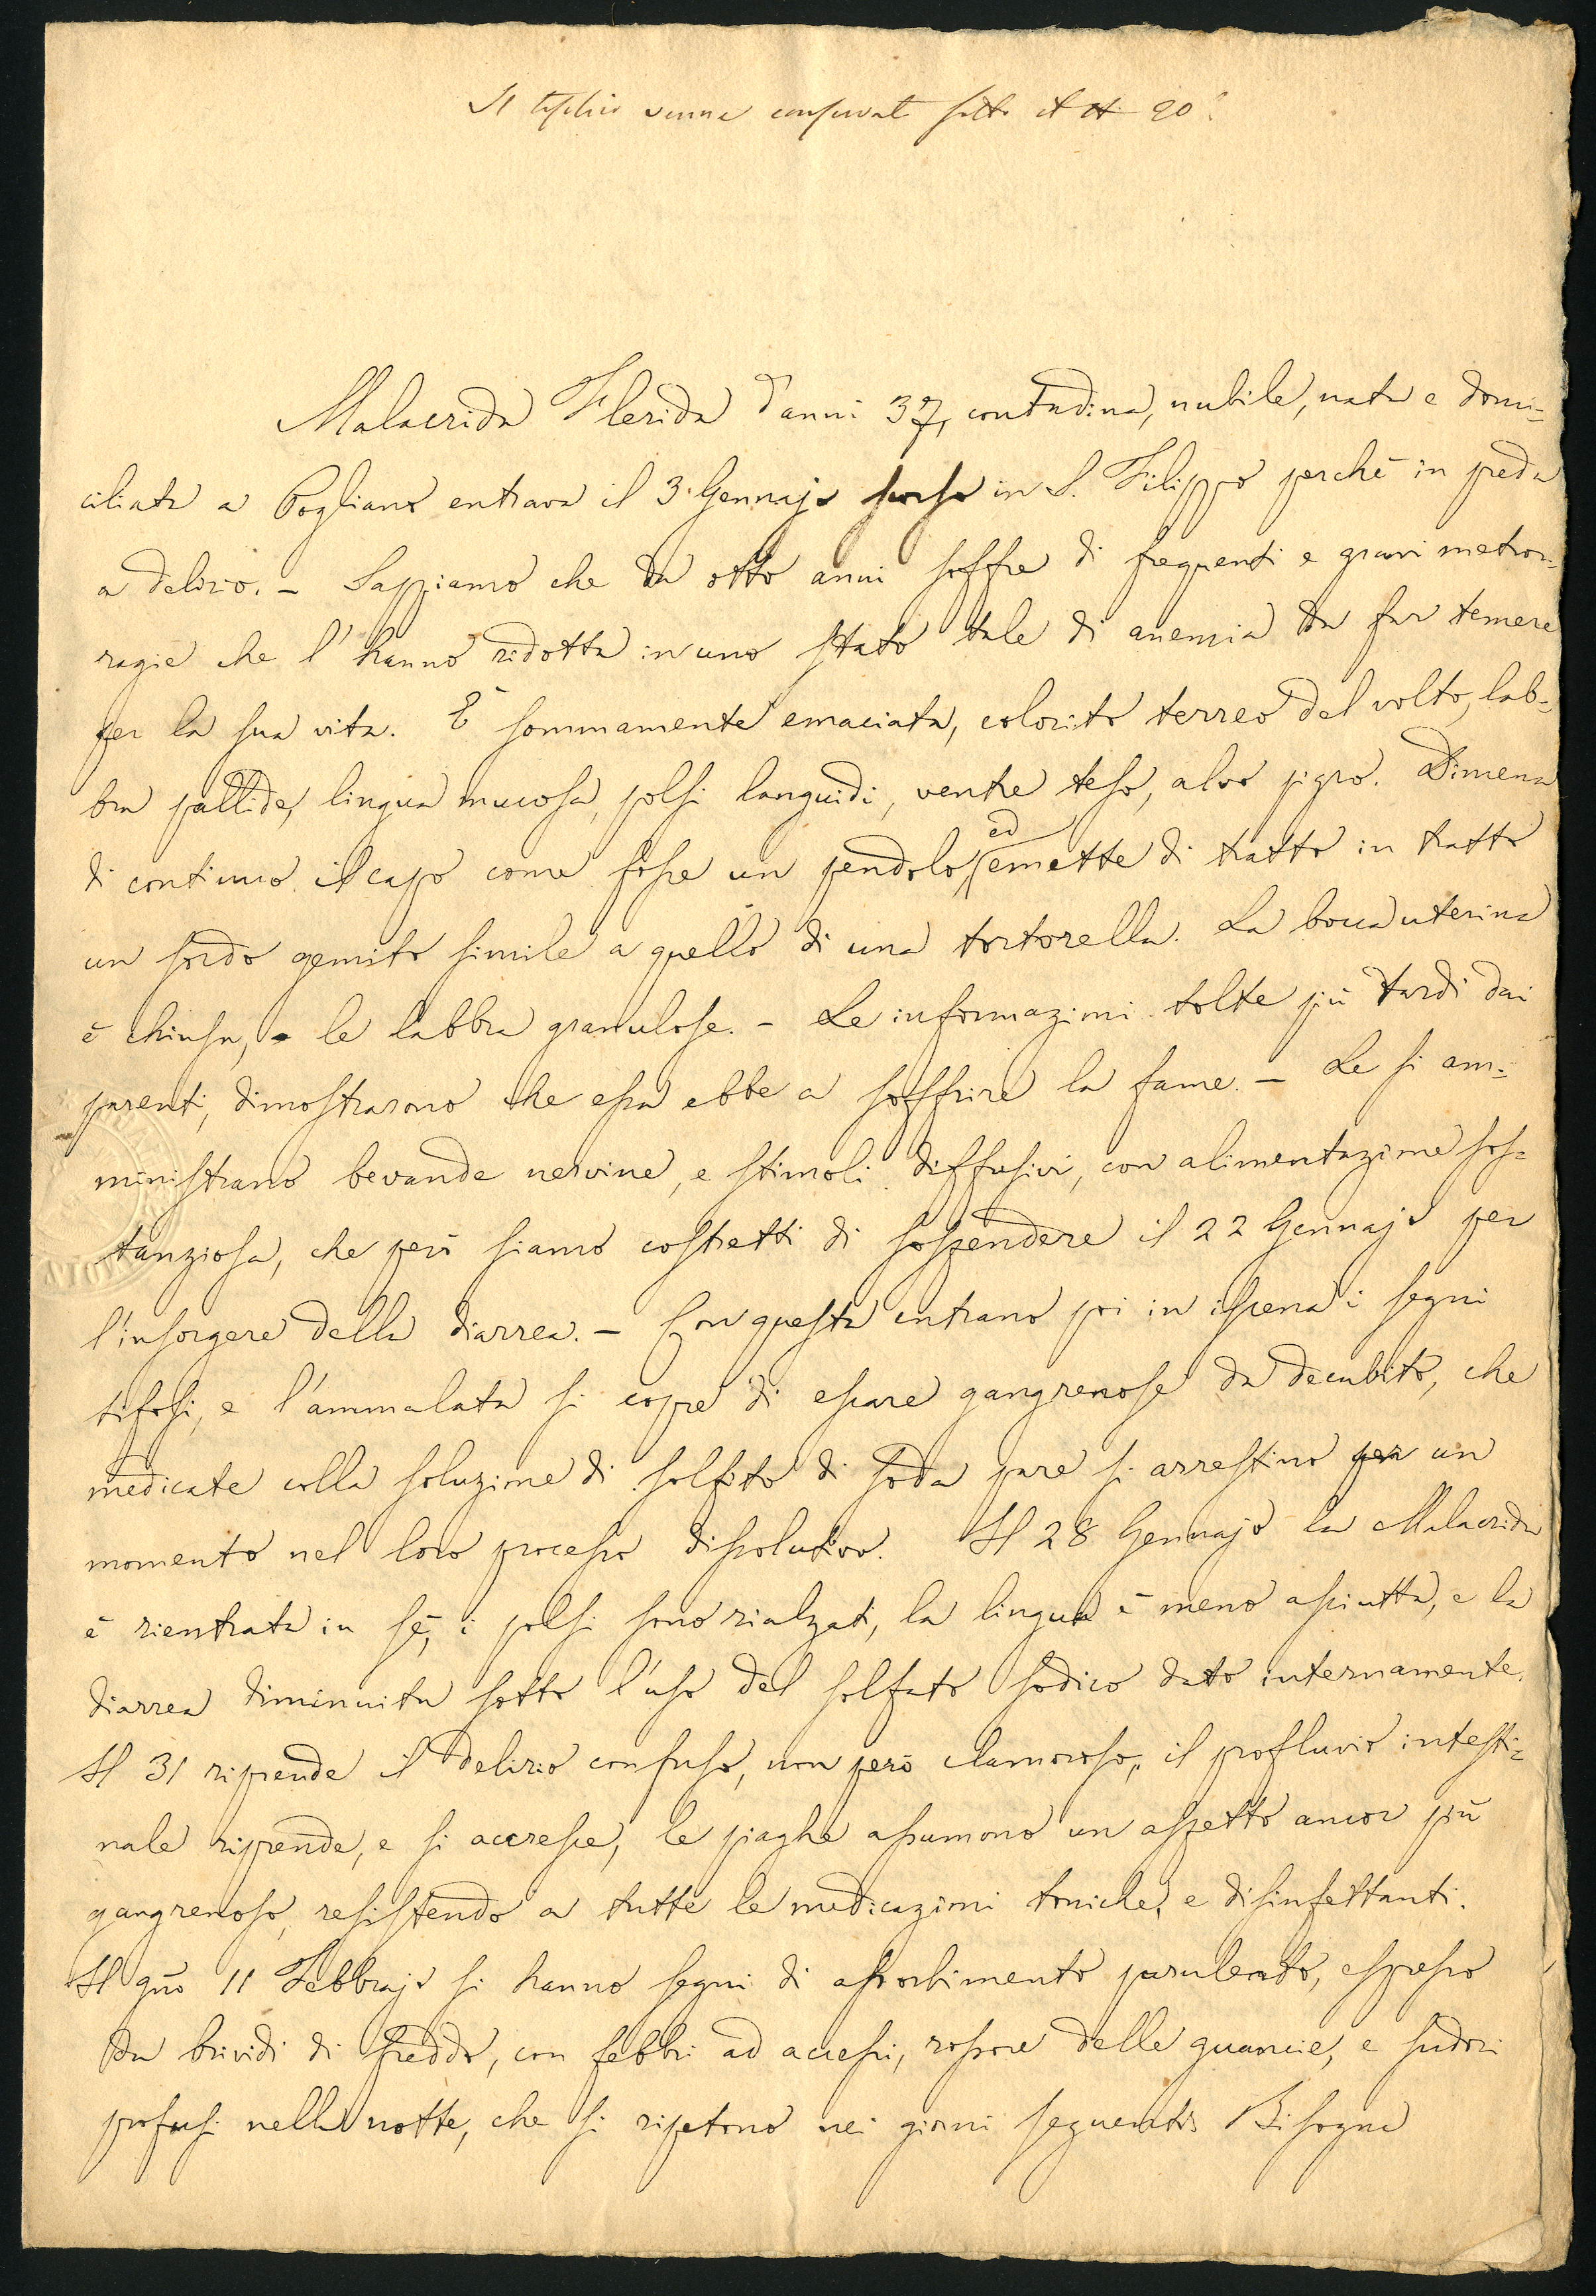 Il teschio venne conservato sotto il N 90.
Malacrida Flerida d'anni 37, contadina, nubile, nata e domi=
ciliata a Pogliano entrava il 3 Gennajo scorso in S. Filippo perchè in preda
a delirio. - Sappiamo che da otto anni soffre di frequenti e gravi metror=
ragie che l'hanno ridotta in uno stato tale di anemia da far temere
per la sua vita. È sommamente emaciata, colorito terreo del volto, lab=
bra pallide, lingua mucosa, polsi languidi, ventre teso, alvo pigro. Dimena
di continuo il capo come fosse un pendolo ed emette di tratto in tratto
un sordo gemito simile a quello di una tortorella. La bocca uterina
è chiusa, le labbra granulose. - Le informazioni tolte più tardi dai
parenti, dimostrarono che essa ebbe a soffrire la fame. - Le si am=
ministrano bevande nervine, e stimoli diffusivi, con alimentazione sos=
tanziosa, che però siamo costretti di sospendere il 22 Gennajo per
l'insorgere della diarrea. - Con questa entrano poi in iscena i segni
tifosi, e l'ammalata si copre di escare gangrenose da decubito, che
medicate colla soluzione di solfito di soda pare si arrestino per un
momento nel loro processo dissolutivo. Il 28 Gennajo la Malacrida
è rientrata in sè, i polsi sono rialzati, la lingua è meno asciutta, e la
diarrea diminuita sotto l'uso del solfato sodico dato internamente.
Il 31 riprende il delirio confuso, non però clamoroso, il profluvio intesti=
nale riprende, e si accresce, le piaghe assumono un aspetto ancor più
gangrenoso, resistendo a tutte le medicazioni toniche, e disinfettanti.
Il gno 11 Febbrajo si hanno segni di assorbimento purulento, espresso
da brividi di freddo, con febbri ad accessi, rossore delle guancie, e sudori
profusi nella notte, che si ripetono nei giorni seguenti. Bisogna